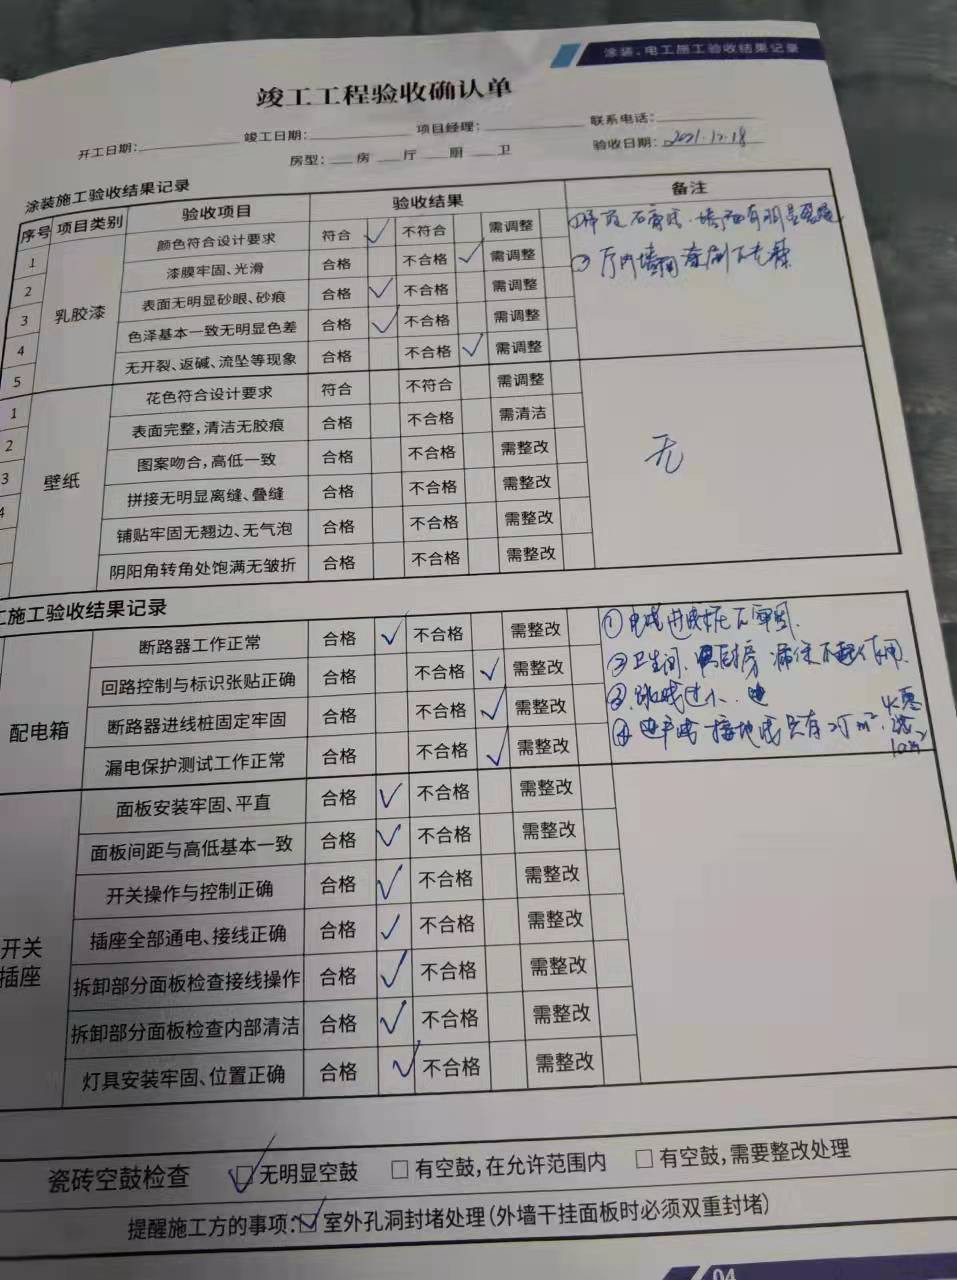 涂装、电工施工验收结果记录
竣工工程验收确认单
开工日期: 竣工日期: 项目经理: 联系电话:
房型: 房 厅 厨 卫 验收日期: 2021.12.18
涂装施工验收结果记录
序号 项目类别 验收项目 验收结果 备注
1 颜色符合设计要求 符合 ✓ 不符合 需调整
2 漆膜牢固、光滑 合格 不合格 ✓ 需调整
3 乳胶漆 表面无明显砂眼、砂痕 合格 ✓ 不合格 需调整
4 色泽基本一致无明显色差 合格 ✓ 不合格 需调整
5 无开裂、返碱、流坠等现象 合格 不合格 ✓ 需调整
①吊顶石膏线、墙面有明显裂缝
② 厅内墙面
1 花色符合设计要求 符合 不符合 需调整
2 表面完整,清洁无胶痕 合格 不合格 需清洁
3 壁纸 图案吻合,高低一致 合格 不合格 需整改
4 拼接无明显离缝、叠缝 合格 不合格 需整改
铺贴牢固无翘边、无气泡 合格 不合格 需整改
阴阳角转角处饱满无皱折 合格 不合格 需整改
无
工施工验收结果记录
断路器工作正常 合格 ✓ 不合格 需整改
回路控制与标识张贴正确 合格 不合格 ✓ 需整改
配电箱 断路器进线桩固定牢固 合格 不合格 ✓ 需整改
漏电保护测试工作正常 合格 不合格 ✓ 需整改
①电线进线桩不牢固.
②卫生间、厨房 漏保不起作用
③ 线过小
④ 接地线只有
面板安装牢固、平直 合格 ✓ 不合格 需整改
面板间距与高低基本一致 合格 ✓ 不合格 需整改
开关操作与控制正确 合格 ✓ 不合格 需整改
开关插座 插座全部通电、接线正确 合格 ✓ 不合格 需整改
拆卸部分面板检查接线操作 合格 ✓ 不合格 需整改
拆卸部分面板检查内部清洁 合格 ✓ 不合格 需整改
灯具安装牢固、位置正确 合格 ✓ 不合格 需整改
瓷砖空鼓检查 ☑无明显空鼓 □有空鼓,在允许范围内 □有空鼓,需要整改处理
提醒施工方的事项:☑室外孔洞封堵处理(外墙干挂面板时必须双重封堵)
04